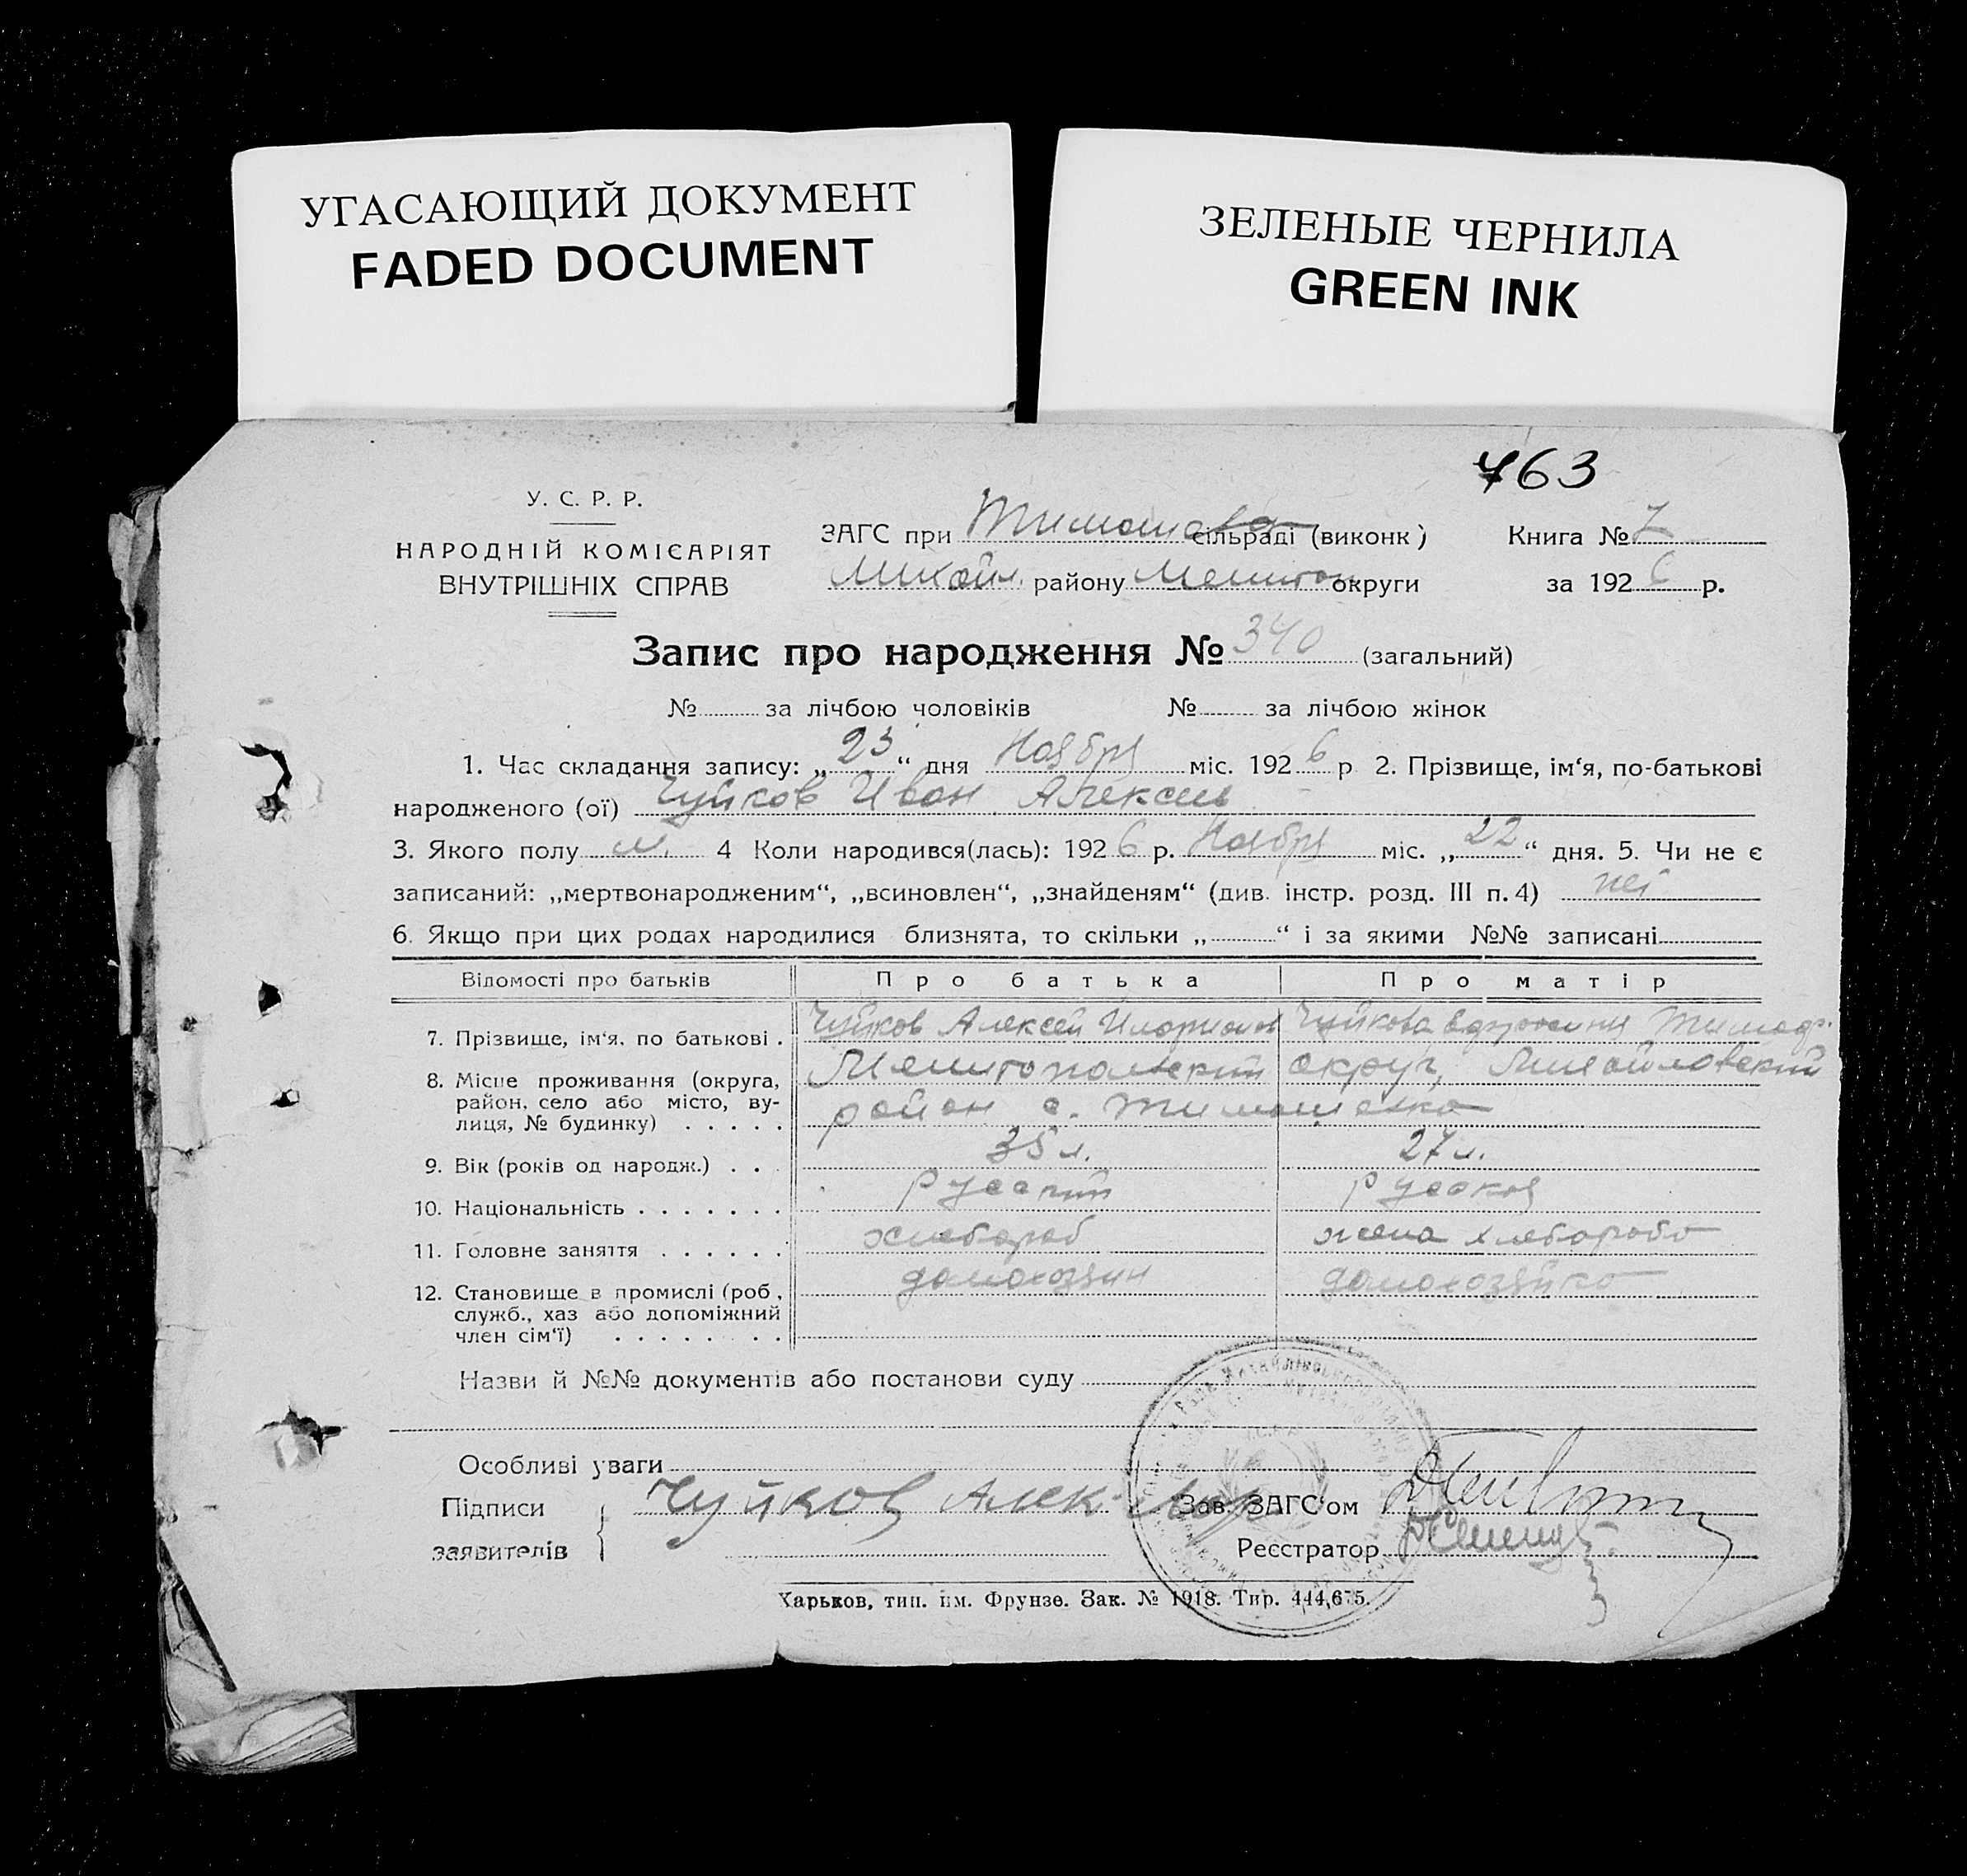 УГАСАЮЩИЙ ДОКУМЕНТ
FADED DOCUMENT
ЗЕЛЕНЫЕ ЧЕРНИЛА
GREEN INK
763
У. С. Р. Р.
НАРОДНІЙ КОМІСАРІЯТ
ВНУТРІШНІХ СПРАВ
ЗАГС при Тимошев сільраді (виконк) Книга № 7
Михайл. району Мелитоп округи за 1926 р.
Запис про народження № 340 (загальний)
№ за лічбою чоловіків № за лічбою жінок
1. Час складання запису: „23“ дня Ноября міс. 1926 р 2. Прізвище, ім‘я, по-батькові
народженого (ої) Чуйков Иван Алексеев
3. Якого полу м. 4 Коли народився(лась): 1926 р. Ноября міс. „22“ дня. 5. Чи не є
записаний: „мертвонародженим“, „всиновлен“, „знайденям“ (див. інстр. розд. III п. 4) нет
6. Якщо при цих родах народилися близнята, то скільки „ “ і за якими №№ записані
Відомості про батьків Про батька Про матір
7. Прізвище, ім‘я, по батькові . Чуйков Алексей Иларионов Чуйкова Тимоф.
8. Місце проживання (округа, Мелитопольский округ, Михайловский
район, село або місто, ву- район с. Тимошевка
лиця, № будинку) . . . . .
9. Вік (років од народж.) . . . 35 л. 27 л.
10. Національність . . . . . . . Русский Русская
11. Головне заняття . . . . . . хлебороб жена хлебороба
12. Становище в промислі (роб., домохозяин домохозяйка
служб., хаз або допоміжний
член сім‘ї) . . . . . . . .
Назви й №№ документів або постанови суду
Особливі уваги
Підписи Чуйков Алек Зав. ЗАГС‘ом
заявителів Реєстратор
Харьков, тип. им. Фрунзе. Зак. № 1918. Тир. 444,675.